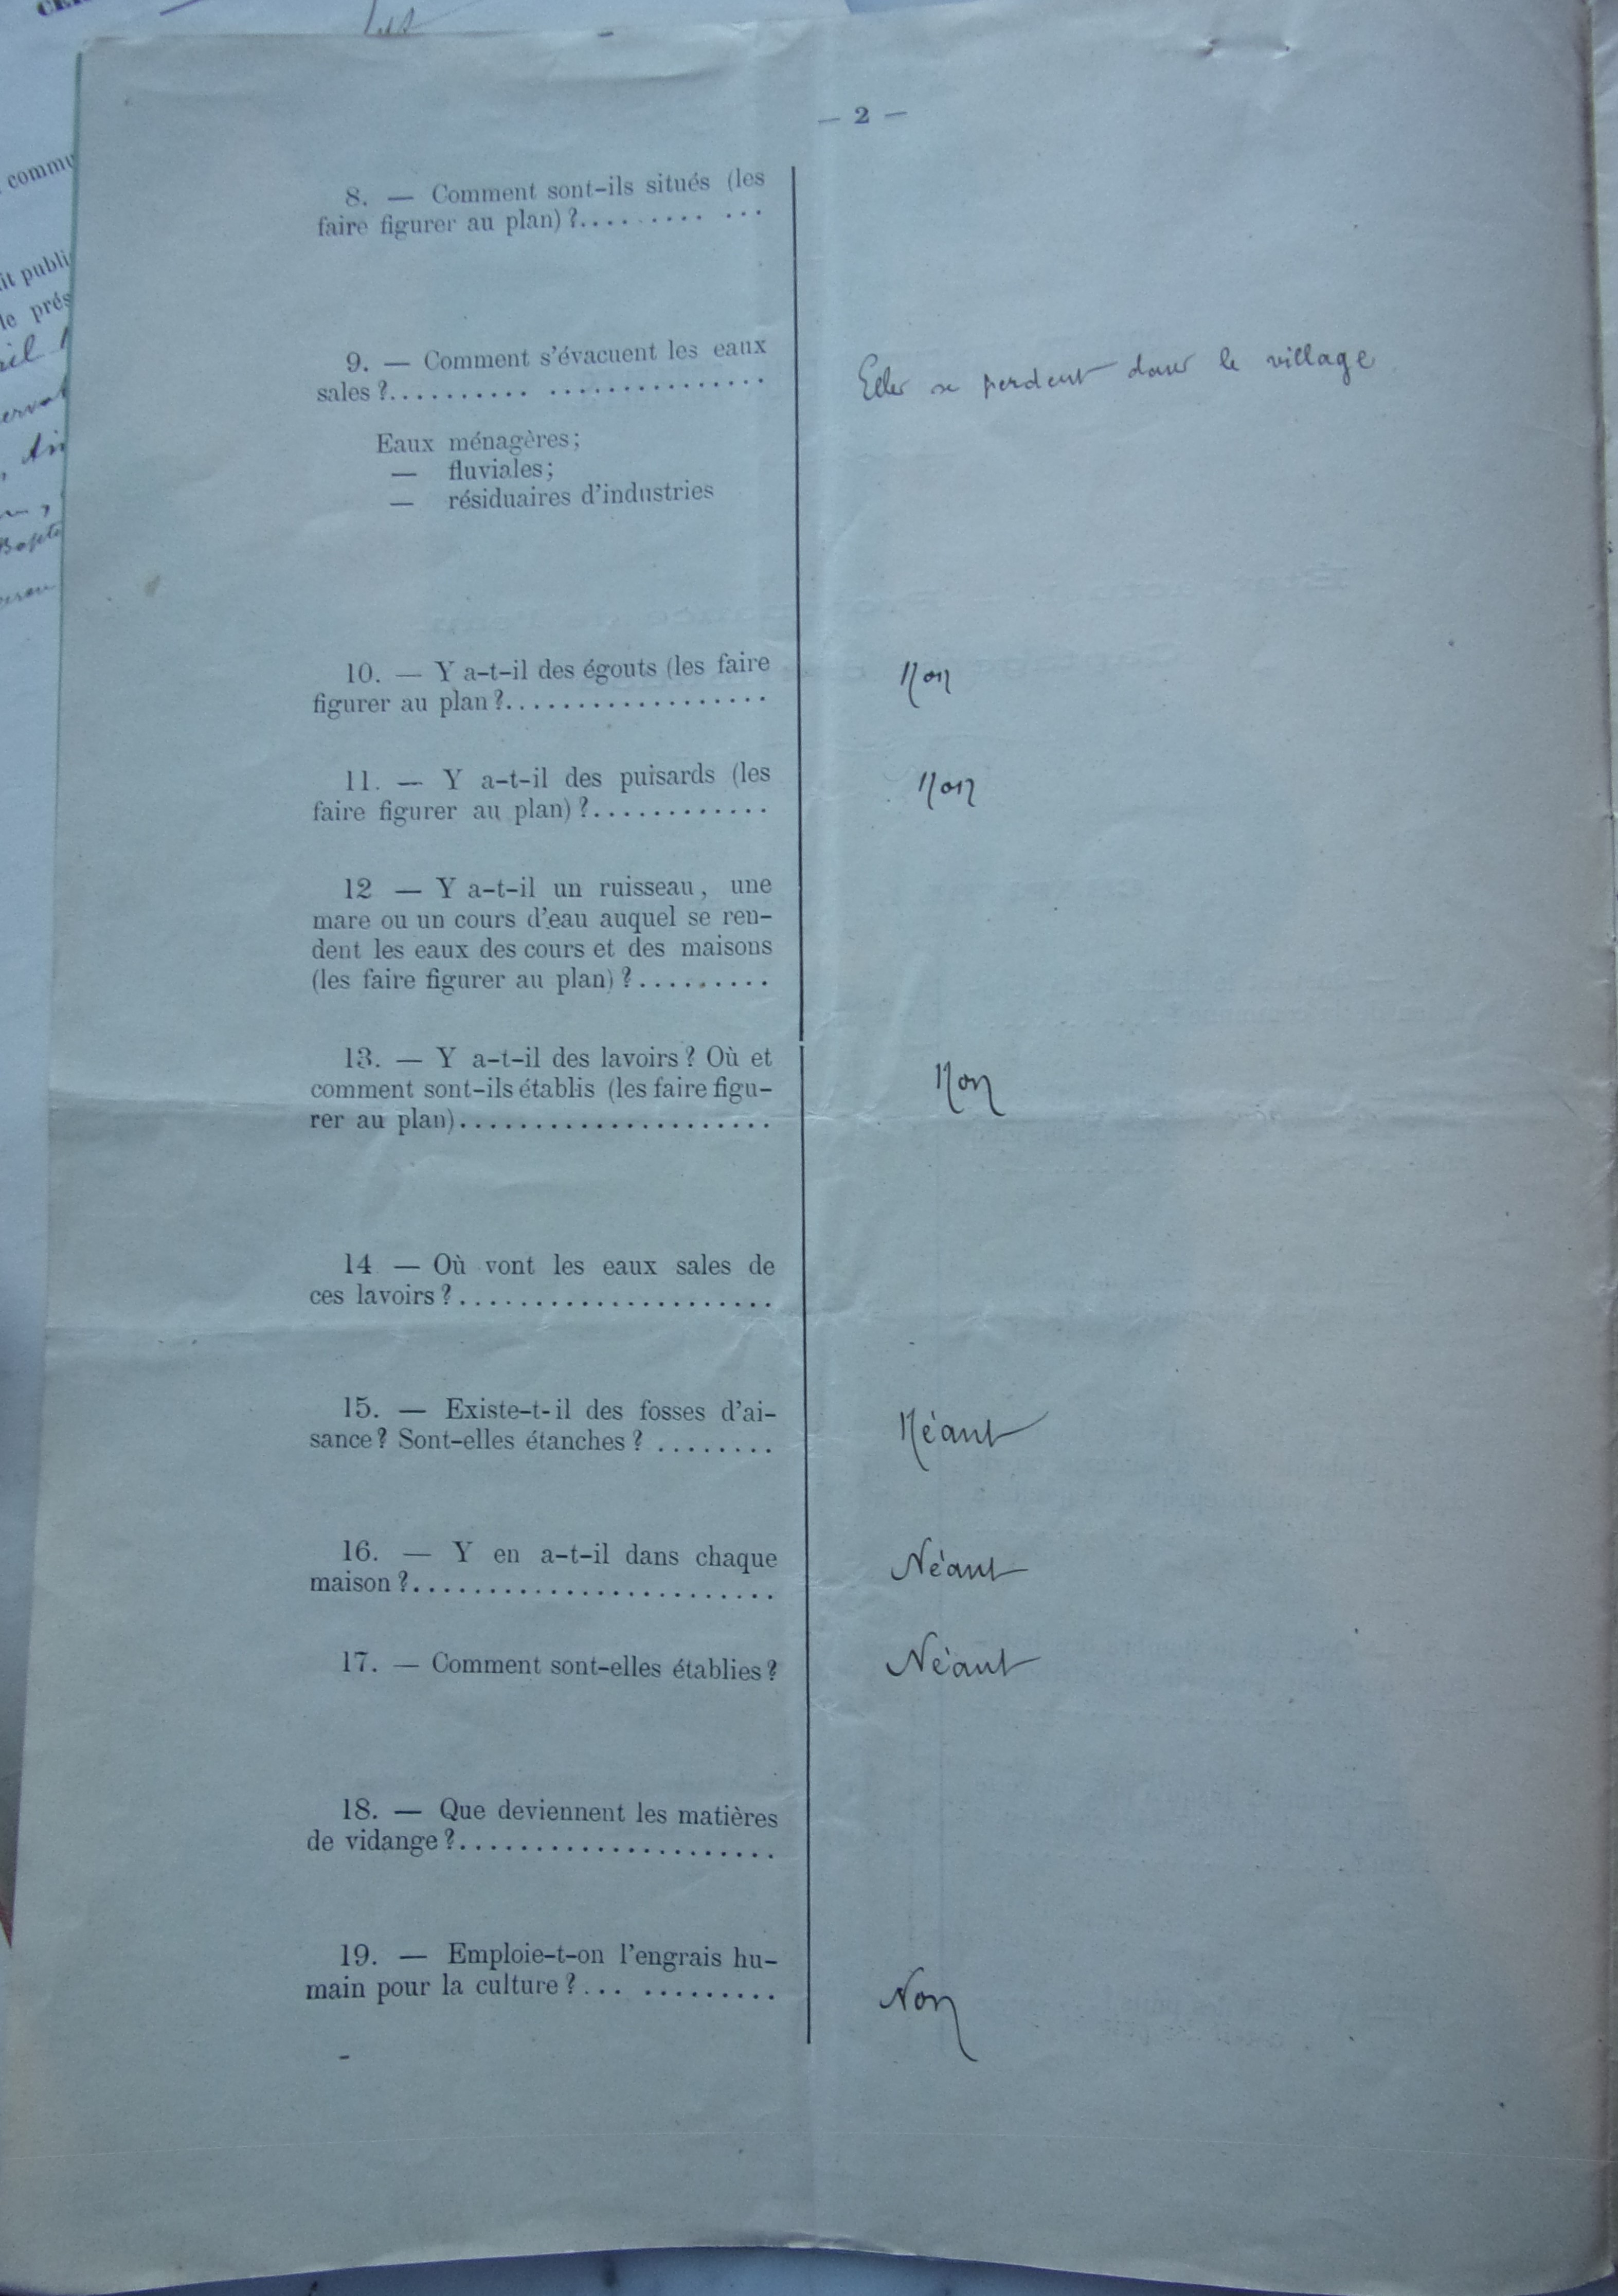 — 2 —
8. — Comment sont-ils situés (les
faire figurer au plan) ?......... ...
9. — Comment s'évacuent les eaux
sales ?.......... ...............
Elles se perdent dans le village
Eaux ménagères;
— fluviales;
— résiduaires d'industries
10. — Y a-t-il des égouts (les faire
figurer au plan ?...................
Non
11. — Y a-t-il des puisards (les
faire figurer au plan) ?............
Non
12 — Y a-t-il un ruisseau, une
mare ou un cours d'eau auquel se ren-
dent les eaux des cours et des maisons
(les faire figurer au plan) ?.........
13. — Y a-t-il des lavoirs ? Où et
comment sont-ils établis (les faire figu-
rer au plan)......................
Non
14 — Où vont les eaux sales de
ces lavoirs ?......................
15. — Existe-t-il des fosses d'ai-
sance ? Sont-elles étanches ? ........
Néant
16. — Y en a-t-il dans chaque
maison ?........................
Néant
17. — Comment sont-elles établies ?
Néant
18. — Que deviennent les matières
de vidange ?.....................
19. — Emploie-t-on l'engrais hu-
main pour la culture ?... .........
Non
commu
it publi
le prés